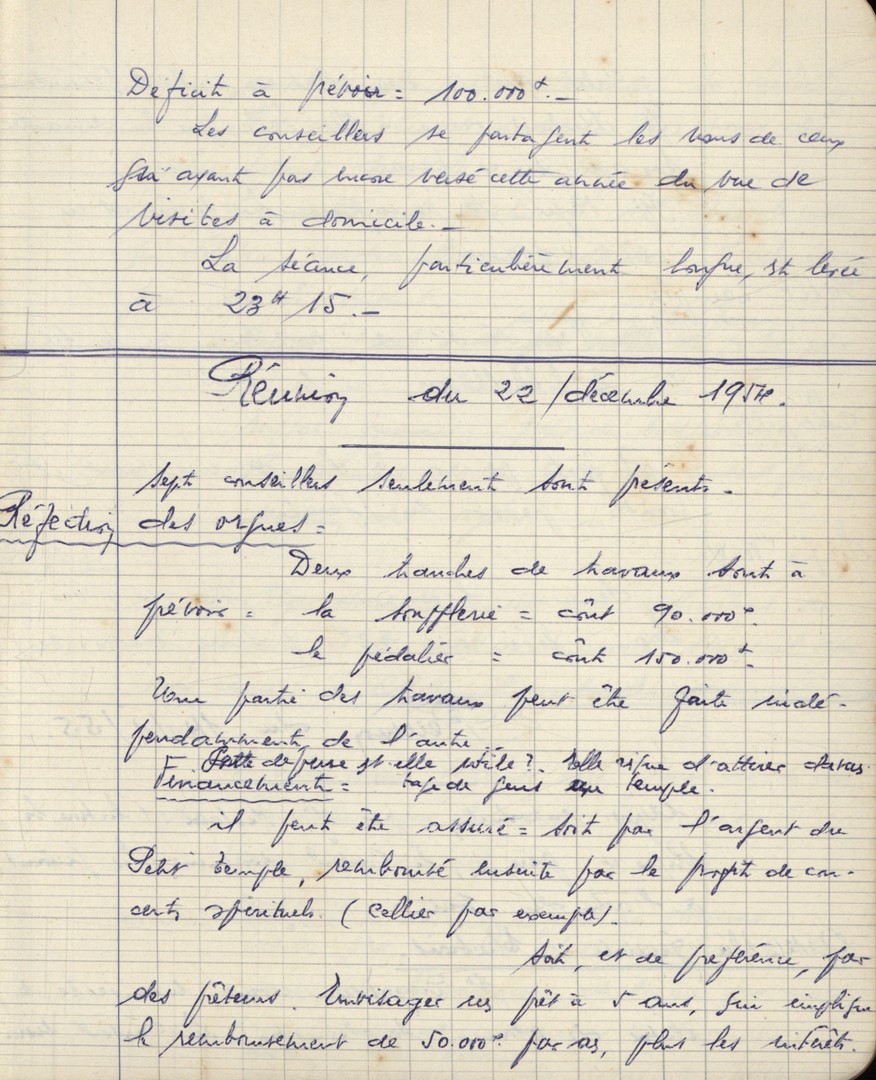 Déficit à prévoir = 100.000 f. _
Les conseillers se partagent les noms de ceux
n'ayant pas encore versé cette année en vue de
visites à domicile. _
La séance, particulièrement longue, est levée
à 23 H 15. _
Réunion du 22 / décembre 1954.
Sept conseillers seulement sont présents.
Réfection des orgues =
Deux tranches de travaux sont à
prévoir = la soufflerie = coût 90.000 f.
le pédalier = coût 150.000 f.
Une partie des travaux peut être faite indé-
pendamment de l'autre.
Cette dépense est-elle utile ? Elle risque d'attirer davan-
Financement = tage de gens au temple.
il peut être assuré = soit par l'argent du
Petit temple, remboursé ensuite par le profit de con-
certs spirituels. (Cellier par exemple).
Soit, et de préférence, par
des prêteurs. Envisager un prêt à 5 ans, qui implique
le remboursement de 50.000 f. par an, plus les intérêts.